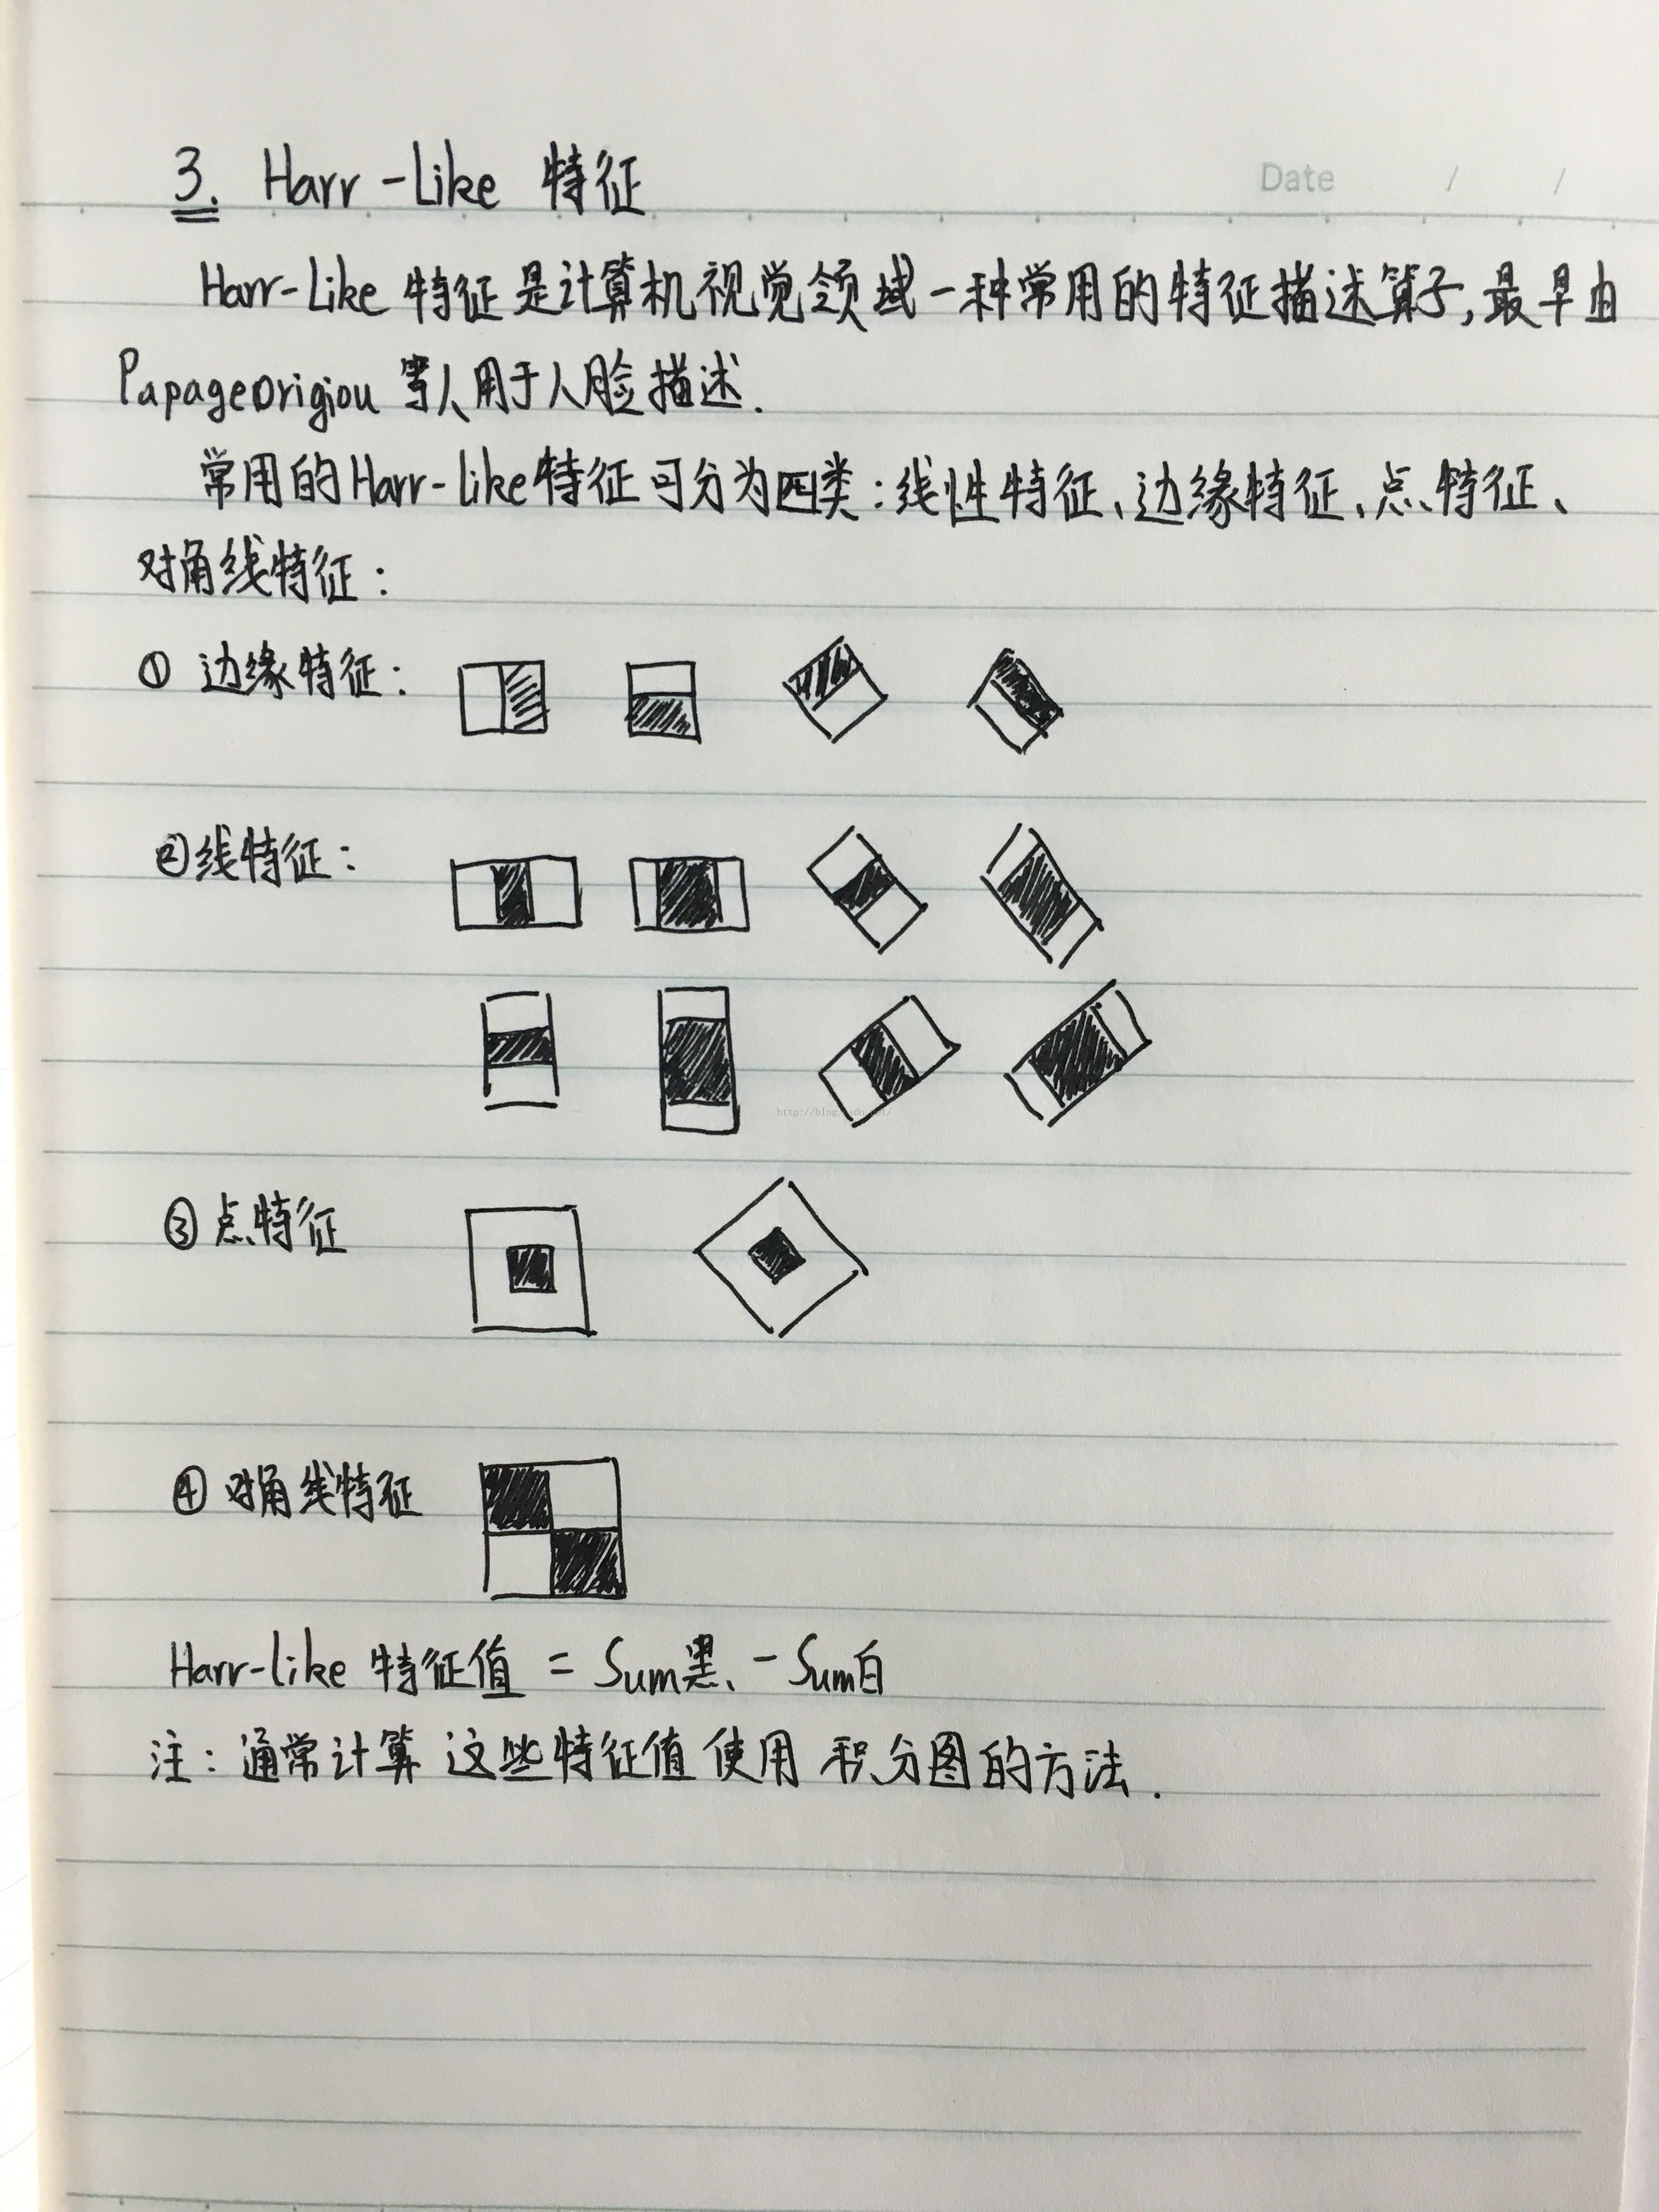 Date / /
3. Harr-Like 特征
Harr-Like 特征是计算机视觉领域一种常用的特征描述算子,最早由
Papageorigiou 等人用于人脸描述.
常用的Harr-like特征可分为四类:线性特征、边缘特征、点特征、
对角线特征:
① 边缘特征:
②线特征:
http://blog.csdn.net/
③ 点特征
④ 对角线特征
Harr-like 特征值 = Sum黑 - Sum白
注: 通常计算 这些特征值 使用 积分图的方法.